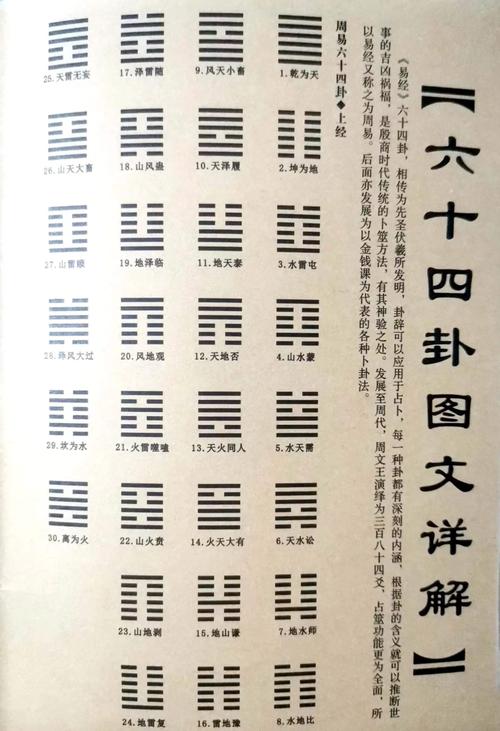 【六十四卦图文详解】
《易经》六十四卦，相传为先圣伏羲所发明，卦辞可以应用于占卜，每一种卦都有深刻的内涵，根据卦的含义就可以推断世
事的吉凶祸福，是殷商时代传统的卜筮方法，有其神验之处。发展至周代，周文王演绎为三百八十四爻，占筮功能更为全面，所
以易经又称之为周易。后面亦发展为以金钱课为代表的各种卜卦法。
周易六十四卦◆上经
1.乾为天
2.坤为地
3.水雷屯
4.山水蒙
5.水天需
6.天水讼
7.地水师
8.水地比
9.风天小畜
10.天泽履
11.地天泰
12.天地否
13.天火同人
14.火天大有
15.地山谦
16.雷地豫
17.泽雷随
18.山风蛊
19.地泽临
20.风地观
21.火雷噬嗑
22.山火贲
23.山地剥
24.地雷复
25.天雷无妄
26.山天大畜
27.山雷颐
28.泽风大过
29.坎为水
30.离为火